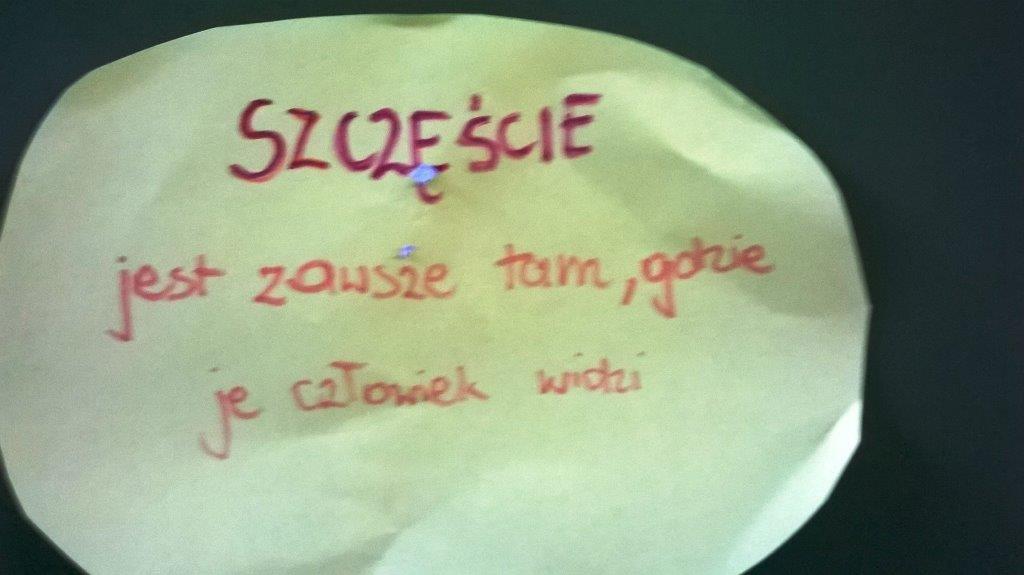 SZCZĘŚCIE
jest zawsze tam, gdzie
je człowiek widzi